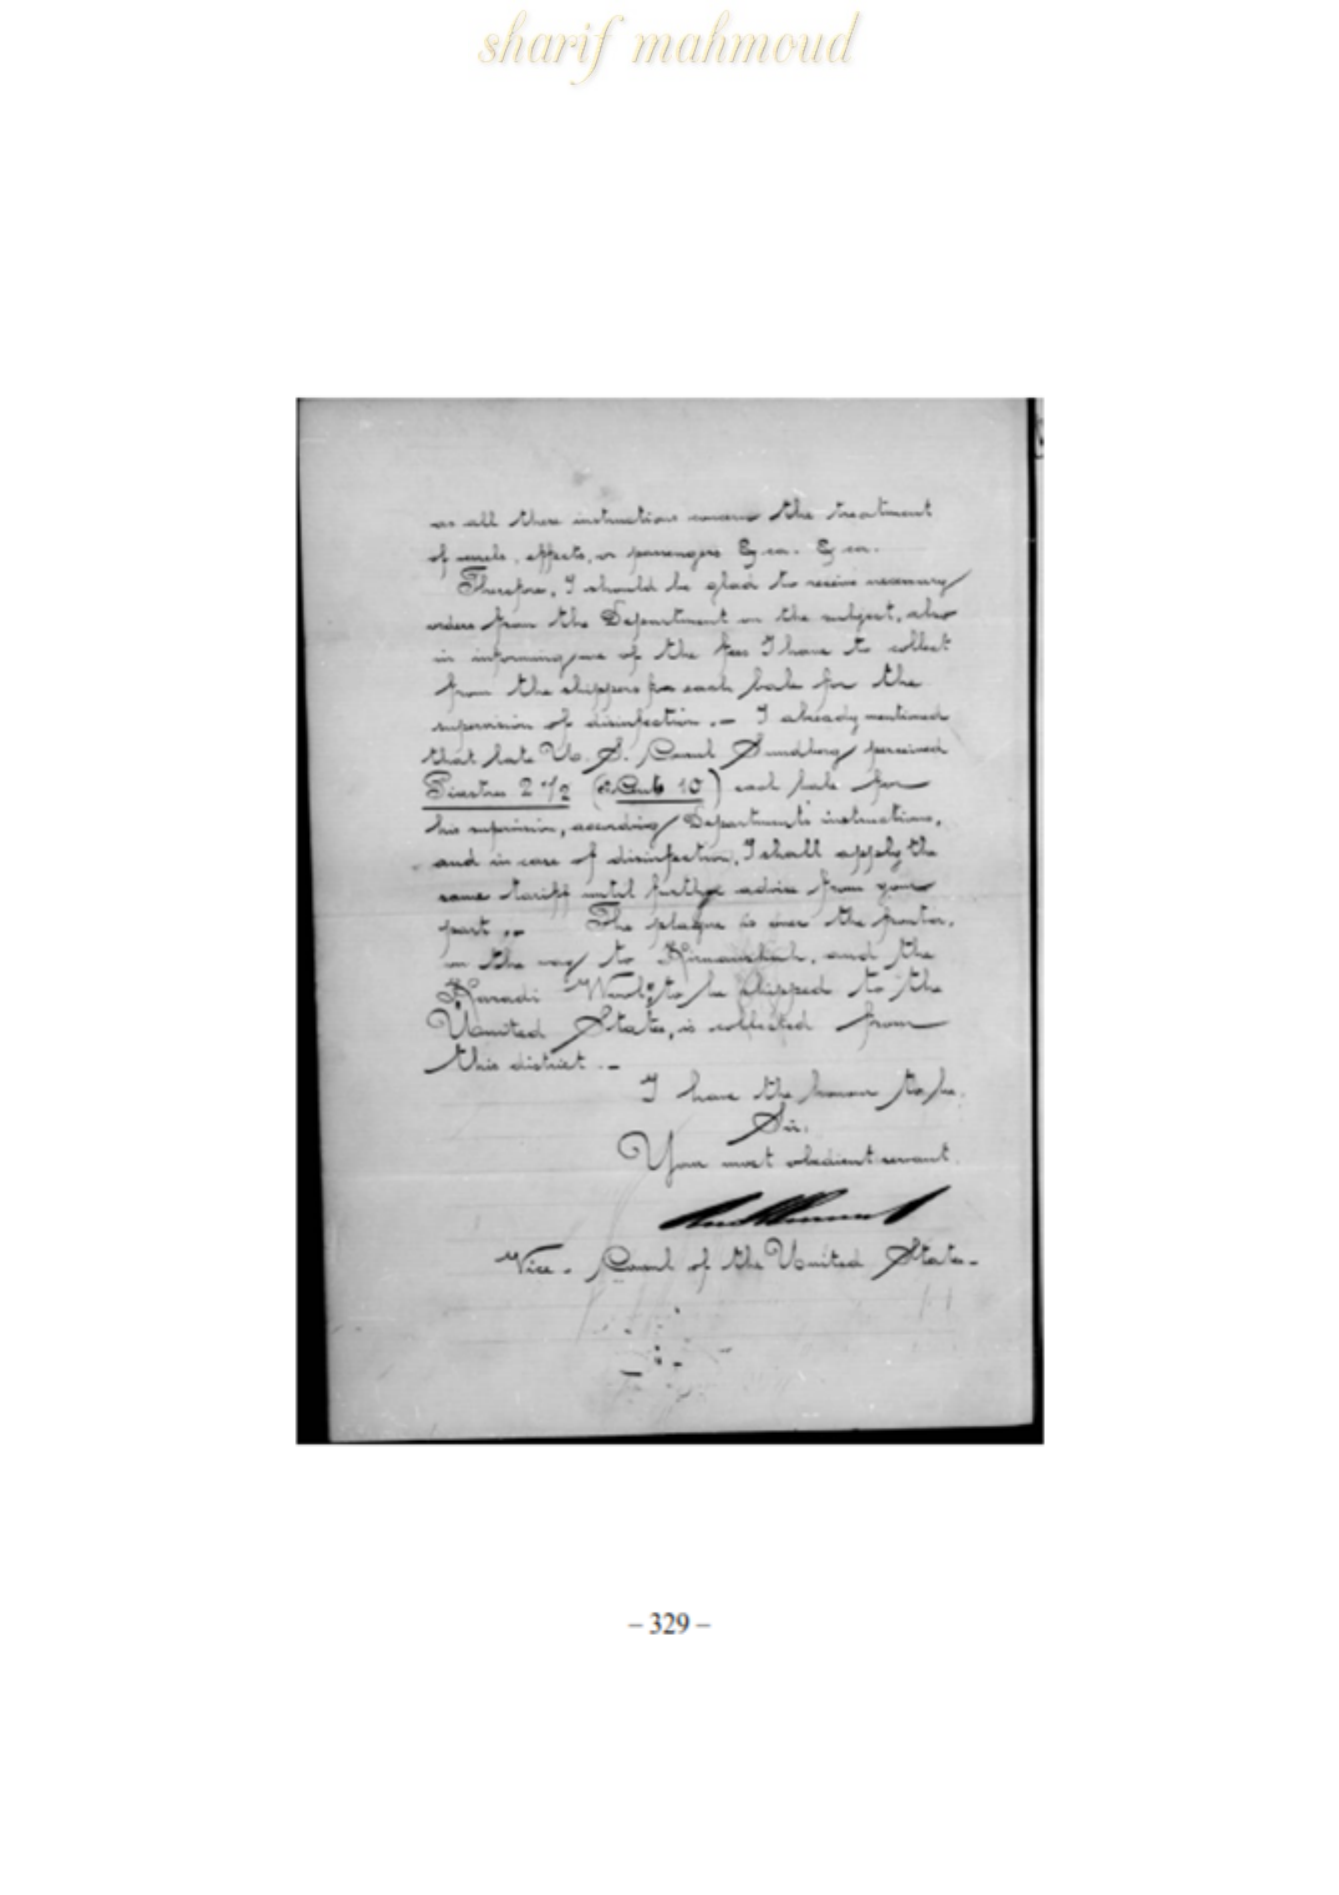 sharif mahmoud
as all these instructions concern the treatment
of vessels, effects, or passengers &ca. &ca.
Therefore, I should be glad to receive necessary
orders from the Department on the subject, also
in informing me of the fees I have to collect
from the shippers for each bale for the
supervision of disinfection.— I already mentioned
that late U. S. Consul Sundberg perceived
Piastres 2 1/2 (Cents 10) each bale for
his supervision, according Department's instructions,
and in case of disinfection, I shall apply the
same tariff until further advice from your
part.— The plague is over the frontier,
on the way to Kirmanshah, and the
Karadi Wool, to be shipped to the
United States, is collected from
this district.—
I have the honor to be,
Sir,
Your most obedient servant.
Vice-Consul of the United States.
– 329 –